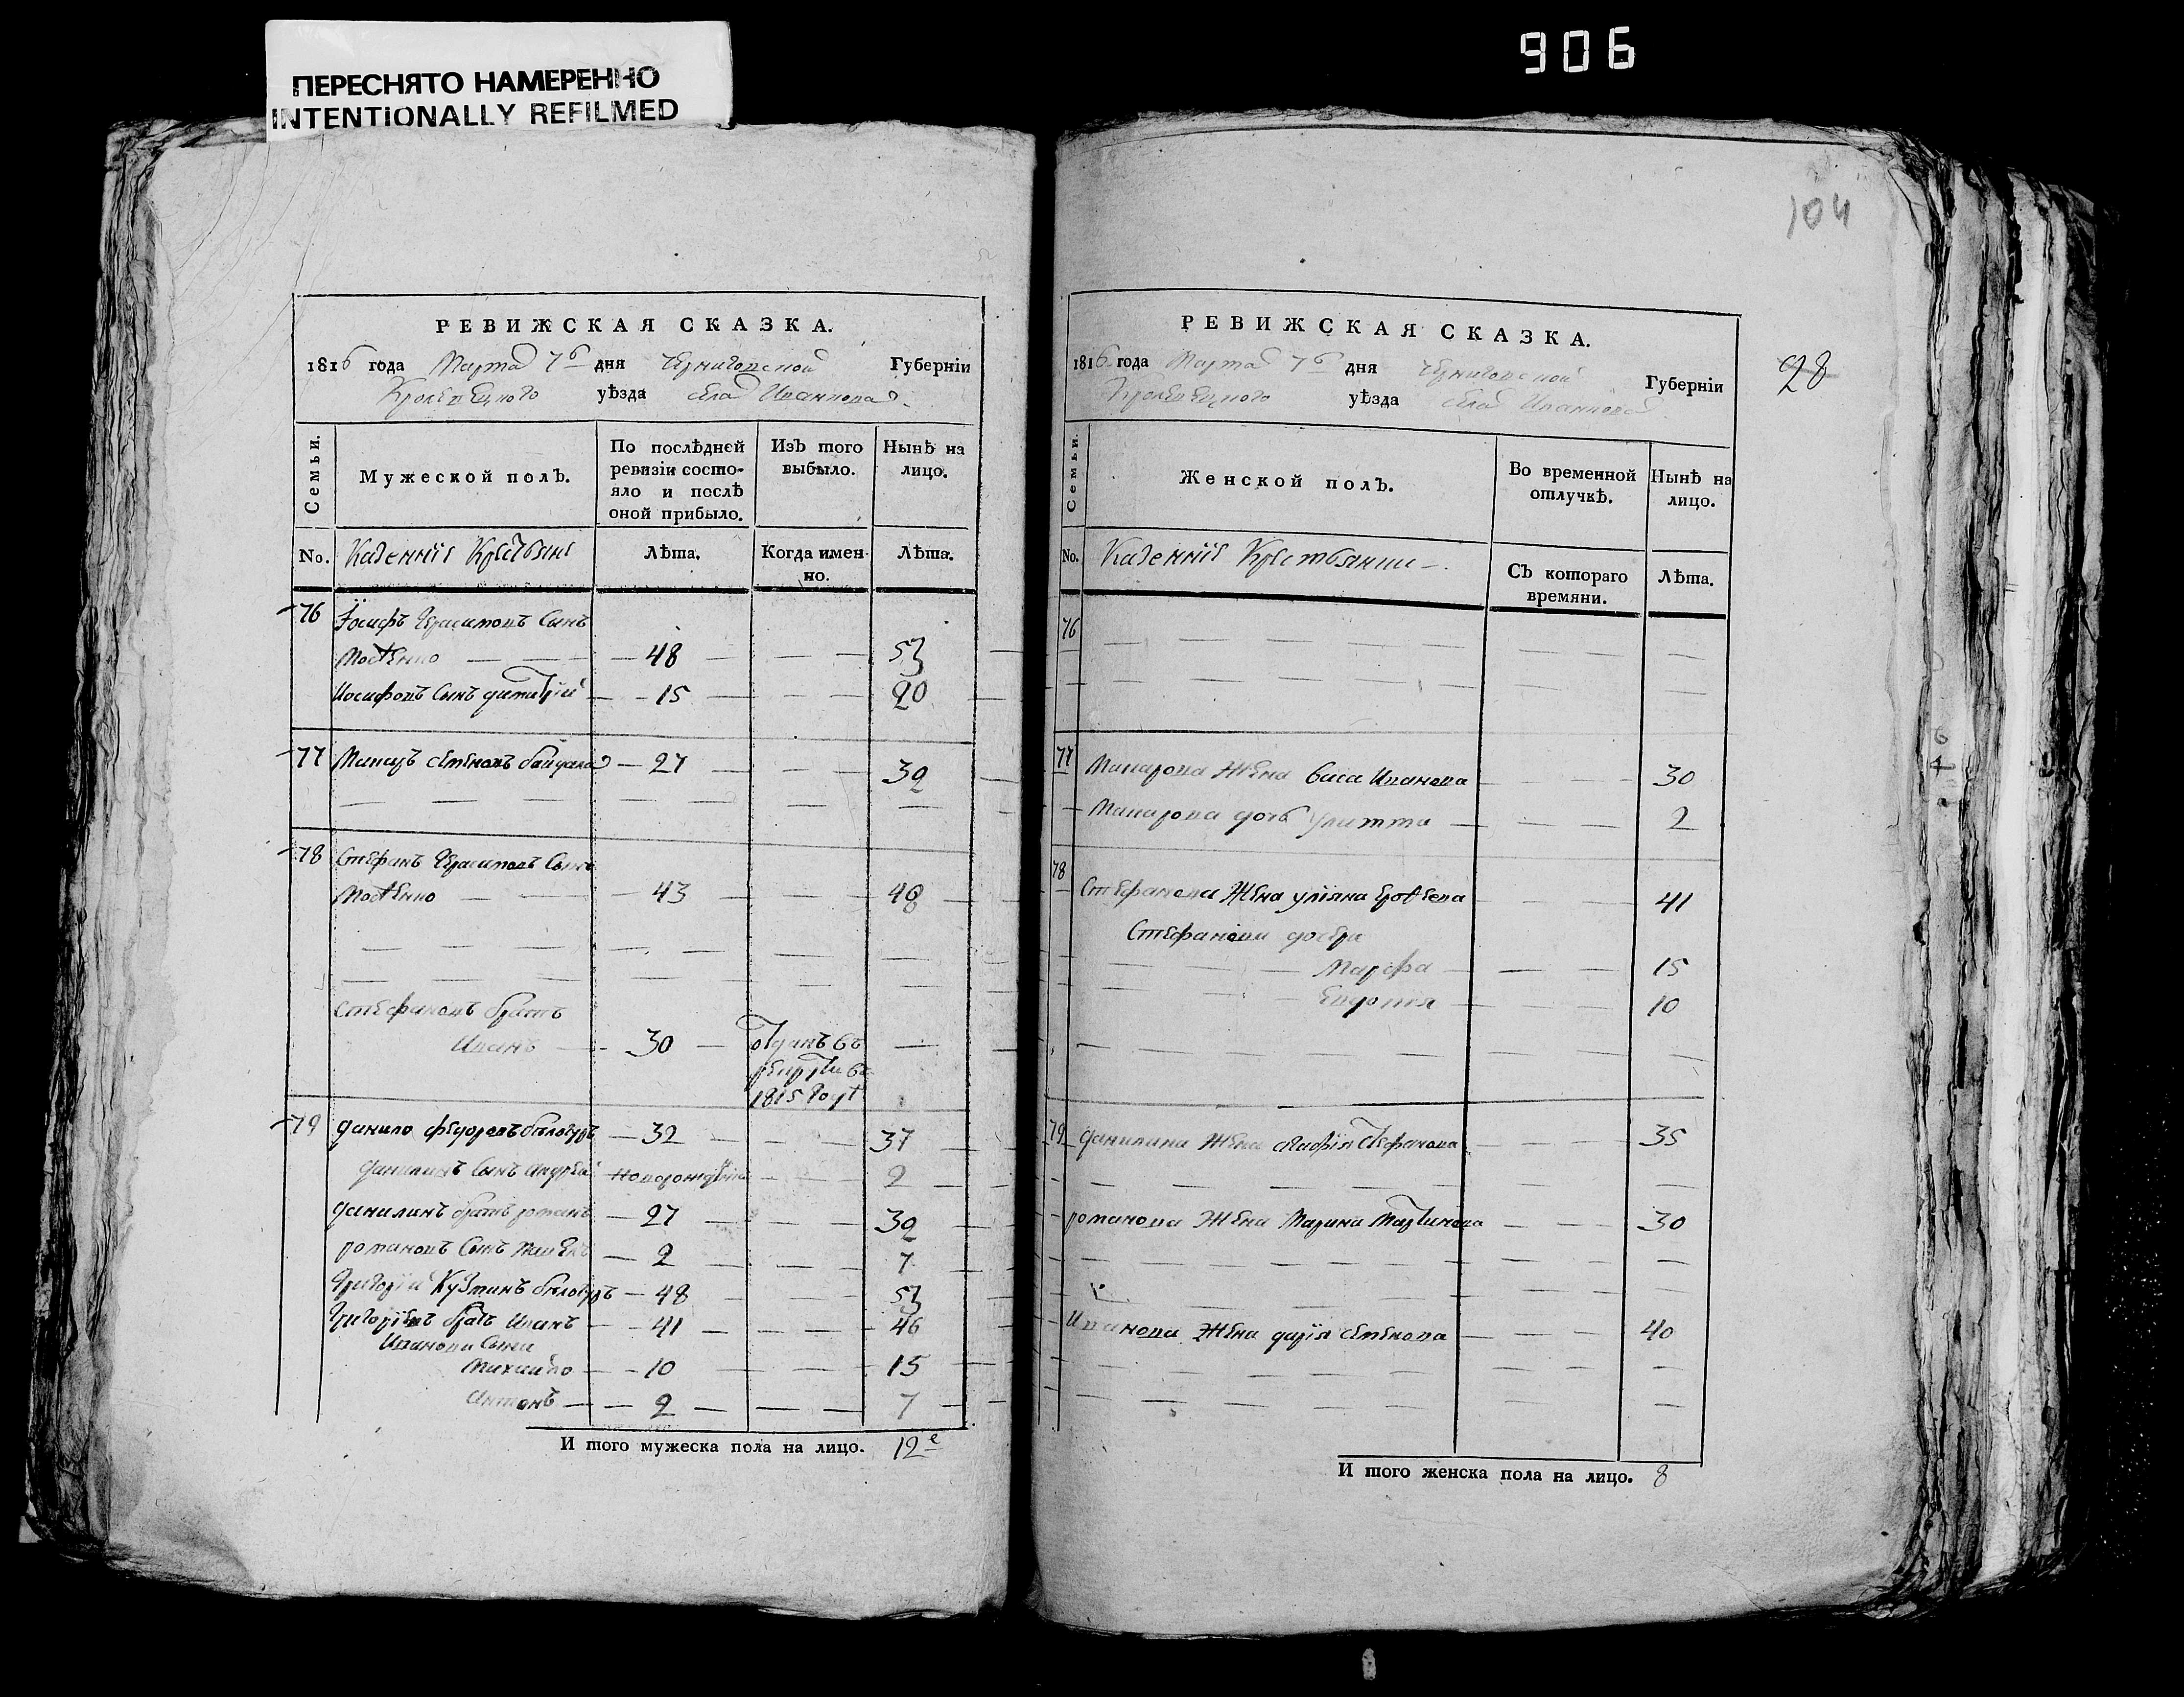 ПЕРЕСНЯТО НАМЕРЕННО
INTENTIONALLY REFILMED
906
104
28
РЕВИЖСКАЯ СКАЗКА.
1816 года Марта 7го дня Черниговской Губерніи
Кролевецкого уѣзда села Иванкова
Семьи.
Мужеской полъ.
По послѣдней ревизіи состояло и послѣ оной прибыло.
Изъ того выбыло.
Нынѣ на лицо.
No.
Казенніе Крестьяне
Лѣта.
Когда именно.
Лѣта.
76 Іосифъ Герасимовъ Сынъ
48 53
Иосифовъ Сынъ дмитрій 15 20
77 Макаръ семеновъ 27 32
78 Стефанъ Герасимовъ Сынъ
43 48
Стефановъ братъ
Иванъ 30 отданъ въ
рекруты въ
1815 годѣ
79 данило федоровъ бѣловусъ 32 37
данилинъ Сынъ андрей новорожденній 2
данилинъ братъ романъ 27 32
романовъ Сынъ 2 7
Григорій Кузминъ бѣловусъ 48 53
Григоріевъ братъ Иванъ 41 46
Иванови Сини
Михайло 10 15
Антонъ 2 7
И того мужеска пола на лицо. 12е
РЕВИЖСКАЯ СКАЗКА.
1816 года Марта 7го дня Черниговской Губерніи
Кролевецкого уѣзда села Иванкова
Семьи.
Женской полъ.
Во временной отлучкѣ.
Нынѣ на лицо.
No.
Казенніе Крестьянки
Съ котораго времяни.
Лѣта.
76
77 Макарова Жена васа Иванова 30
Макарова дочь улитта 2
78
Стефанова Жена уліяна 41
Стефанови дочери
Марфа 15
Евдокия 10
79 данилина Жена агафія Стефанова 35
романова Жена Марина Мартинова 30
Иванова Жена дарія семенова 40
И того женска пола на лицо. 8